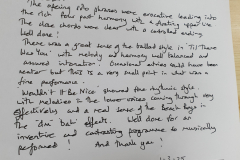 The opening solo phrases were evocative leading into
the rich four part harmony with a floating upper line
The close chords were clear with a controlled ending.
Well done!
There was a good sense of the ballad style in 'Til There
Was You' with melody and harmony well balanced and
assured intonation. Occasional entries could have been
neater but this is a very small point in what was a
fine performance.
'Wouldn't It Be Nice' showed fine rhythmic style
with melodies in the lower voices coming through very
effectively and a real sense of the Beach Boys in
The 'dm bah' effects. Well done for an
inventive and contrasting programme so musically
performed! And Thank you!